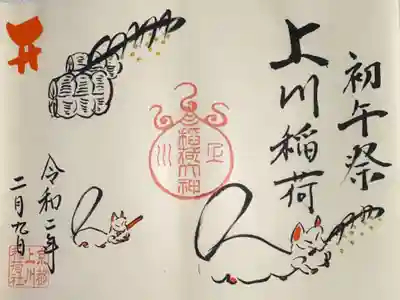 初午祭
上川稲荷
稲荷大神
川
令和二年
二月九日
京都
上川